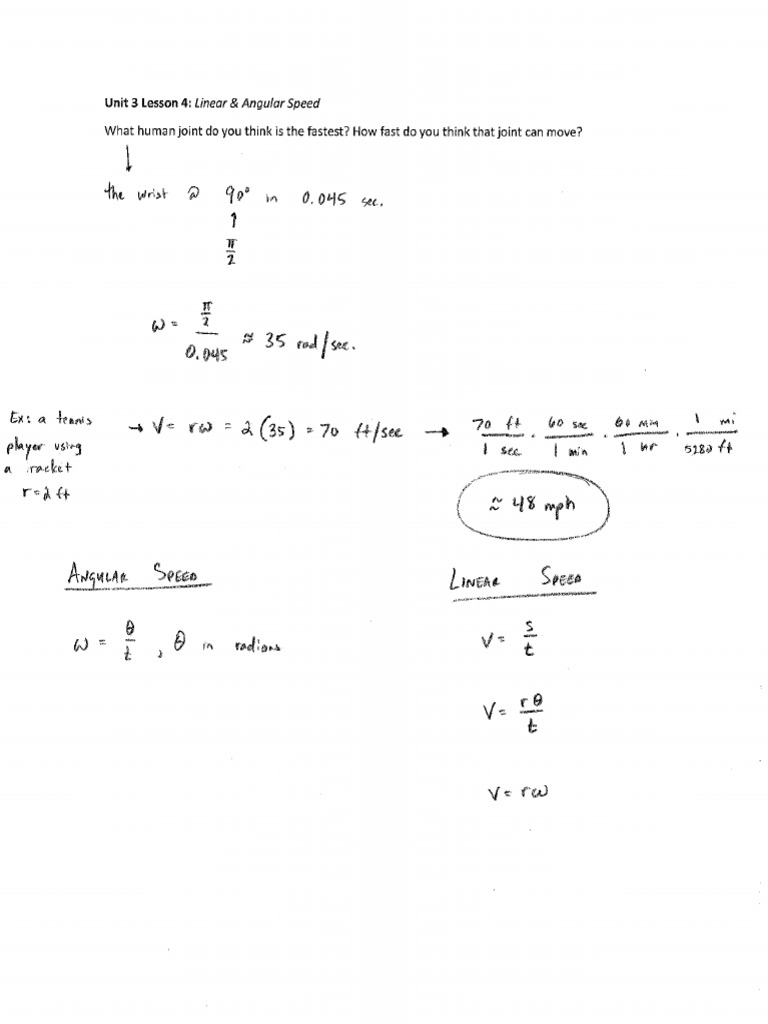 Unit 3 Lesson 4: Linear & Angular Speed
What human joint do you think is the fastest? How fast do you think that joint can move?
↓
the wrist @ 90° in 0.045 sec.
↑
π/2
ω = (π/2)/0.045 ≈ 35 rad/sec.
Ex: a tennis
player using
a racket
r = 2 ft
→ V = rω = 2(35) = 70 ft/sec → 70 ft/1 sec · 60 sec/1 min · 60 min/1 hr · 1 mi/5280 ft
≈ 48 mph
ANGULAR SPEED
ω = θ/t, θ in radians
LINEAR SPEED
V = s/t
V = rθ/t
V = rω